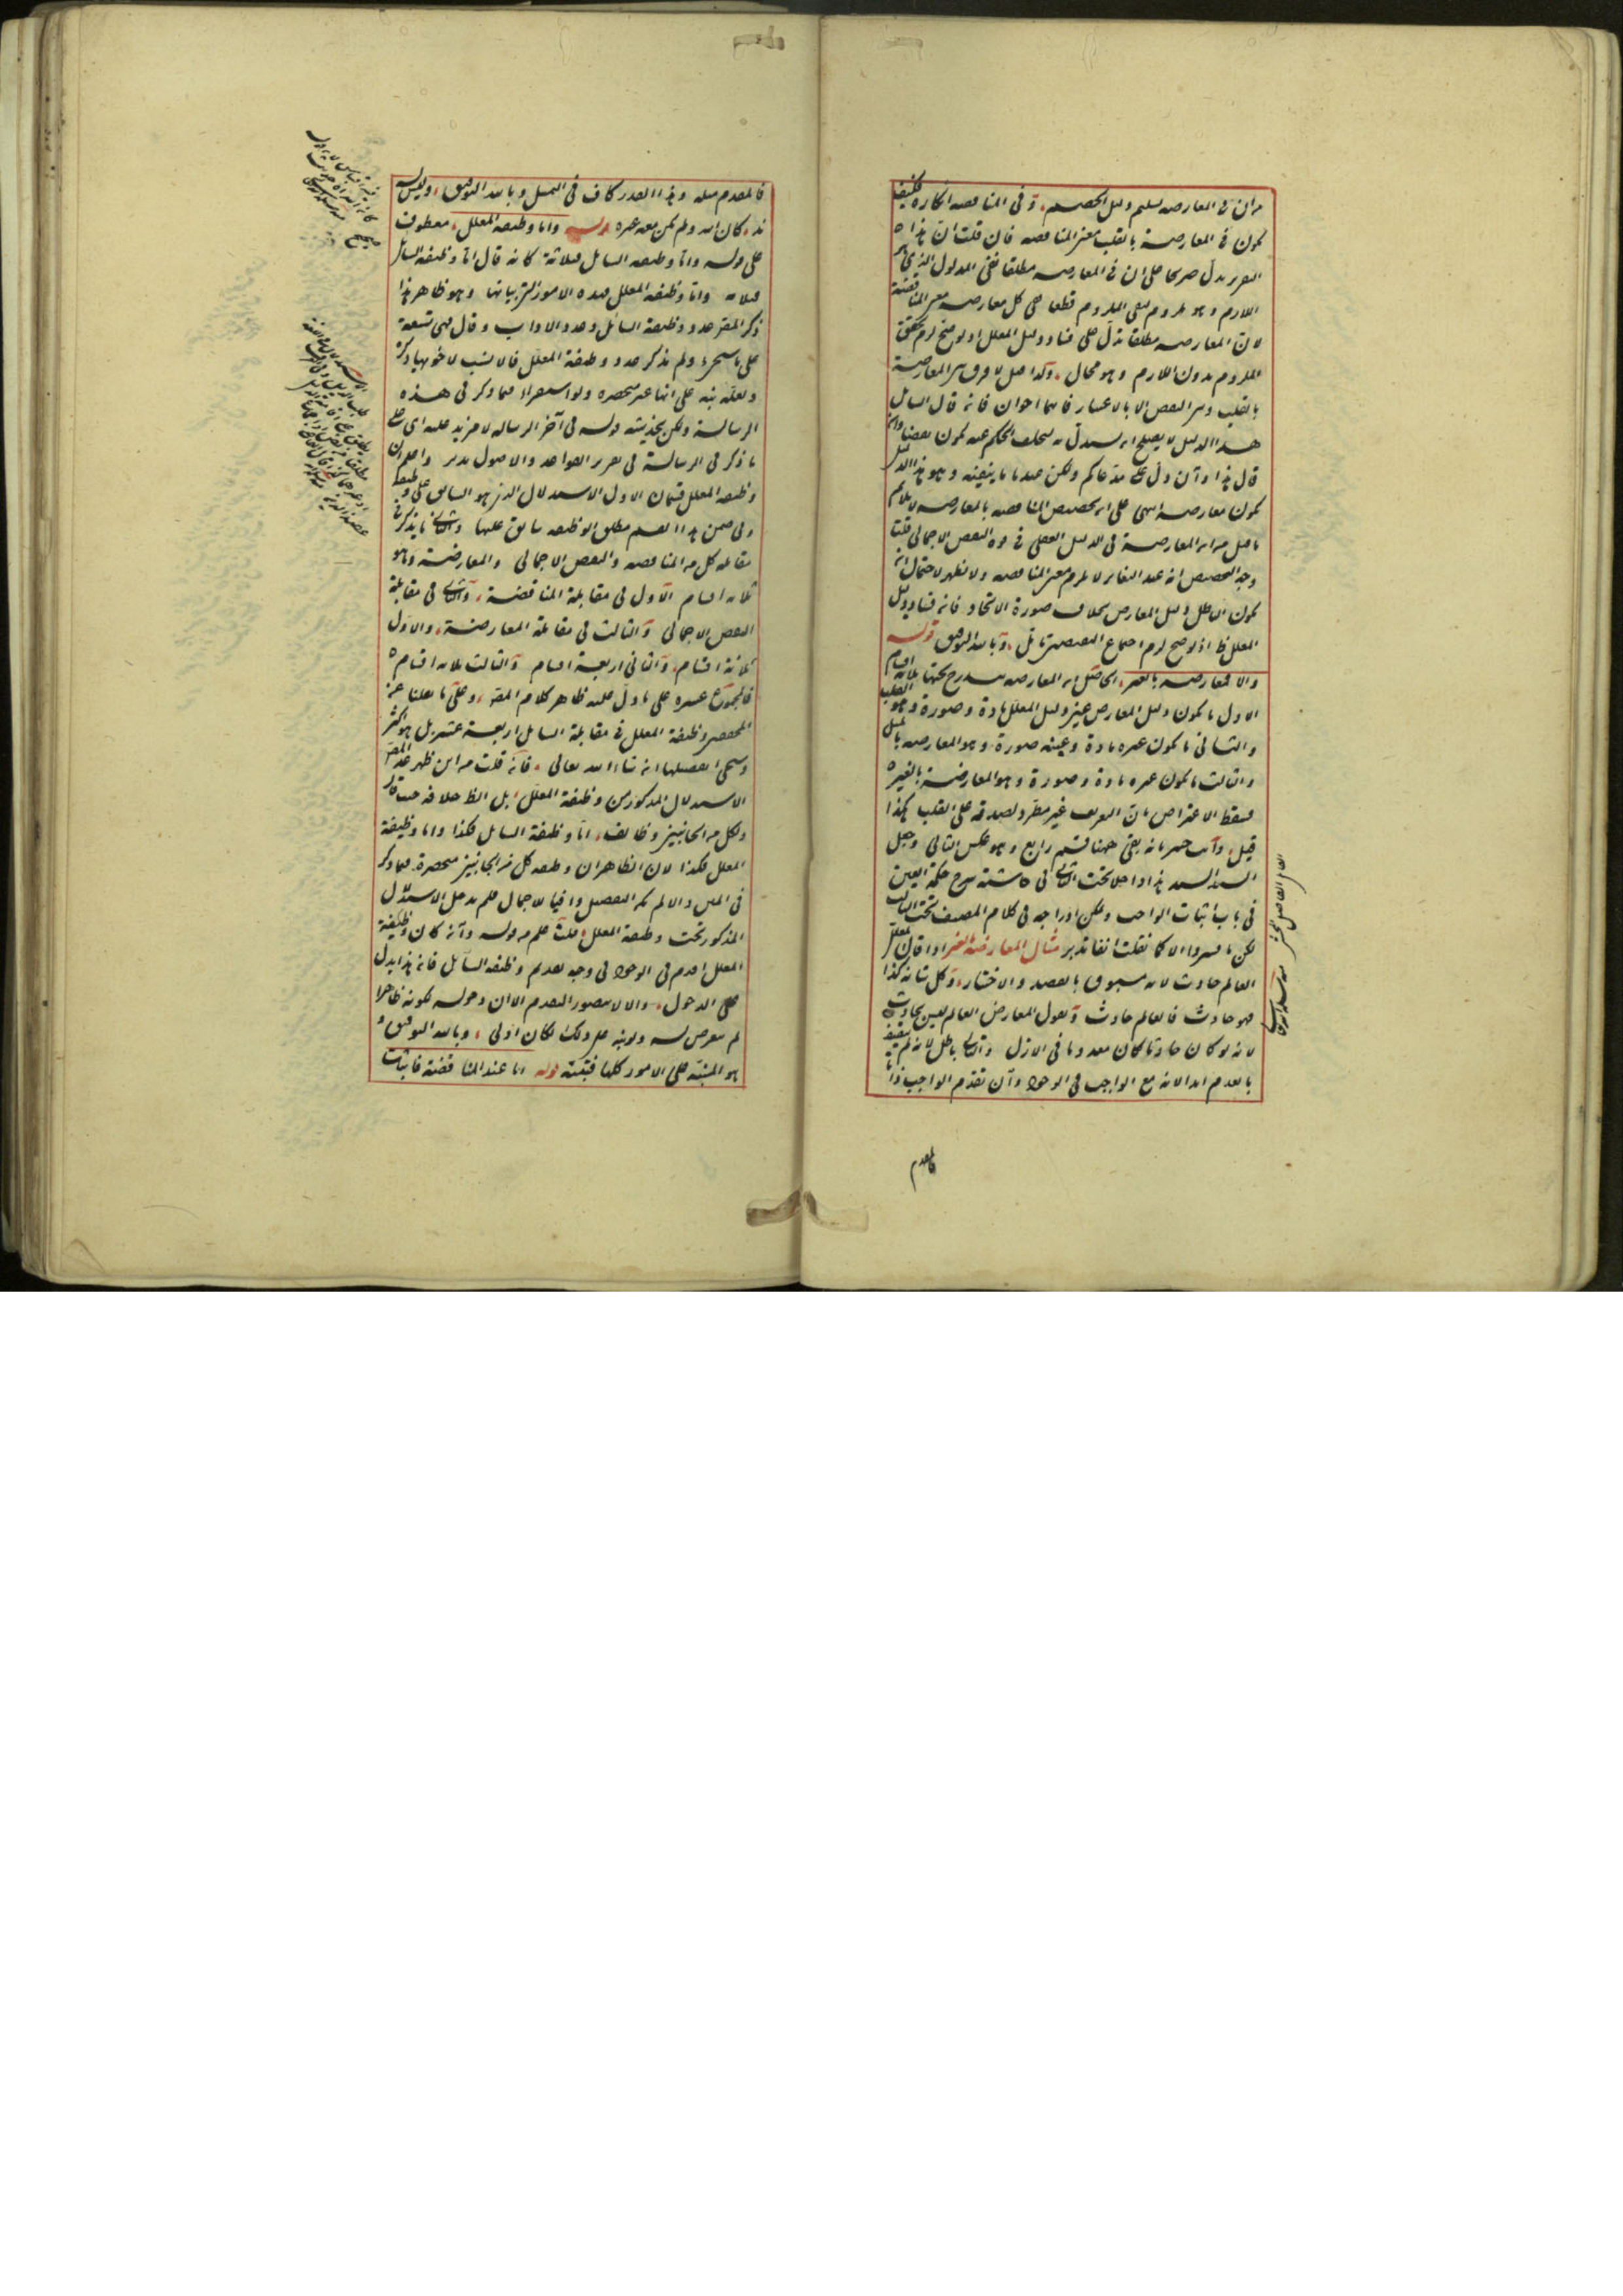 من ان في المعارضه تسليم دليل الخصم وفي المناقضه انكاره فكيف
يكون في المعارضة بالقلب معنى المناقضه فان قلت ان هذا
التقرير يدل صريحا على ان في المعارضه مطلقا نفي المدلول الذي هو
اللازم وهو ملزوم لنفى الملزوم قطعا ففي كل معارضه معنى المناقضة
لان المعارضه مطلقا تدل على فساد دليل المعلل اذ لو صح لزم تحقق
الملزوم بدون اللازم وهو محال وكذا قيل لا فرق بين المعارضة
بالقلب وبين النقض الا بالاعتبار فانهما اخوان فانه قال السائل
هذا الدليل لا يصلح ان يستدل به لتخلف الحكم عنه يكون نقضا وان
قال هذا وان دل على مدعاكم ولكن عندنا ما ينفيه وهو هذا الدليل
يكون معارضه انتهى على ان تخصيص المناقضه بالمعارضه لا يلائم
ما قيل من ان المعارضة في الدليل العقلي في قوة النقض الاجمالي قلت
وجه التخصيص انه عند التغاير لا يلزم معنى المناقضه ولا يظهر لاحتمال ان
يكون الباطل دليل المعارض بخلاف صورة الاتحاد فانه فساد دليل
المعلل ظ اذ لو صح لزم اجتماع النقيضين تامل وبالله التوفيق قوله
والا فمعارضه بالغير الحاصل ان المعارضه يندرج تحتها ثلثه اقسام
الاول ما يكون دليل المعارض عين دليل المعلل مادة وصورة وهو القلب
والثاني ما يكون غيره مادة وعينه صورة وهو المعارضه بالمثل
والثالث ما يكون غيره مادة وصورة وهو المعارضة بالغير
فسقط الاعتراض بان التعريف غير مطرد لصدقه على القلب هكذا
قيل وانت خبير بانه بقي ههنا قسم رابع وهو عكس الثاني وجعل
السيد السند هذا داخلا تحت الثاني في حاشية شرح حكمة العين
في باب اثبات الواجب ويمكن ادراجه في كلام المصنف تحت الثالث
لكن ما فسروا الا كما نقلت انفا تدبر مثال المعارضة بالغير اذا قال المعلل
العالم حادث لانه مسبوق بالقصد والاختيار وكل شانه كذا
فهو حادث فالعالم حادث ويقول المعارض العالم ليس بحادث
لانه لو كان حادثا كان معدوما في الازل والتالي باطل لانه لم يتصف
بالعدم ابدا لانه مع الواجب في الوجود وان تقدم الواجب ذاتا
فالمقدم
فالمقدم مثله وهذا القدر كاف في التمثيل وبالله التوفيق وليس له
ند كان الله ولم يكن معه غيره قوله واما وظيفه المعلل معطوف
على قوله واما وظيفه السائل فثلاثة كانه قال اما وظيفه السائل
فثلاثه واما وظيفه المعلل فهذه الامور التي بيانها وهو ظاهر هذا
ذكر المقر عدد وظيفة السائل وعدد الاداب وقال فهي تسعة
على ما سيجيء ولم يذكر عدد وظيفة المعلل فالانسب لاخويها ذكره
ولعله نبه على انها غير منحصره ولو استقراء فيما ذكر في هذه
الرسالة ولكن يجذبنه قوله في آخر الرساله لا مزيد عليه اي على
ما ذكر في الرسالة في تقرير القواعد والاصول تدبر واعلم ان
وظيفه المعلل قسمان الاول الاستدلال الذي هو السابق على وظيفة
وفي ضمن هذا القسم مطلق الوظيفه سابق عليها والثاني ما يذكر في
مقابله كل من المناقضه والنقض الاجمالي والمعارضة وهو
ثلاثه اقسام الاول في مقابلة المناقضة والثاني في مقابلة
النقض الاجمالي والثالث في مقابلة المعارضة والاول
ثلاثة اقسام والثاني اربعة اقسام والثالث ثلاثه اقسام
فالمجموع عشره على ما دل عليه ظاهر كلام المقر وعلى ما نقلنا عن
المحصر وظيفة المعلل في مقابلة السائل اربعة عشر بل هو اكثر
وسيجئ تفصيلها ان شاء الله تعالى فان قلت من اين ظهر عند المصر
الاستدلال المذكور من وظيفة المعلل بل الظ خلافه حيث قال
ولكل من الجانبين وظائف اما وظيفة السائل فكذا واما وظيفة
المعلل فكذا لان الظاهر ان وظيفه كل من الجانبين منحصرة فيما ذكر
في المتن والا لم يكن التفصيل وافيا للاجمال فلم يدخل الاستدلال
المذكور تحت وظيفة المعلل قلت علم من قوله وان كان وظيفة
المعلل اقدم في الوجود في وجه تقديم وظيفه السائل فانه هذا يدل
على الدخول والا لا يتصور التقدم الا ان دخوله لكونه ظاهرا
لم يتعرض له ولو نبه على ذلك لكان اولى وبالله التوفيق و
هو المنبه على الامور كلها فتنبه قوله اما عند المناقضة فاثبات